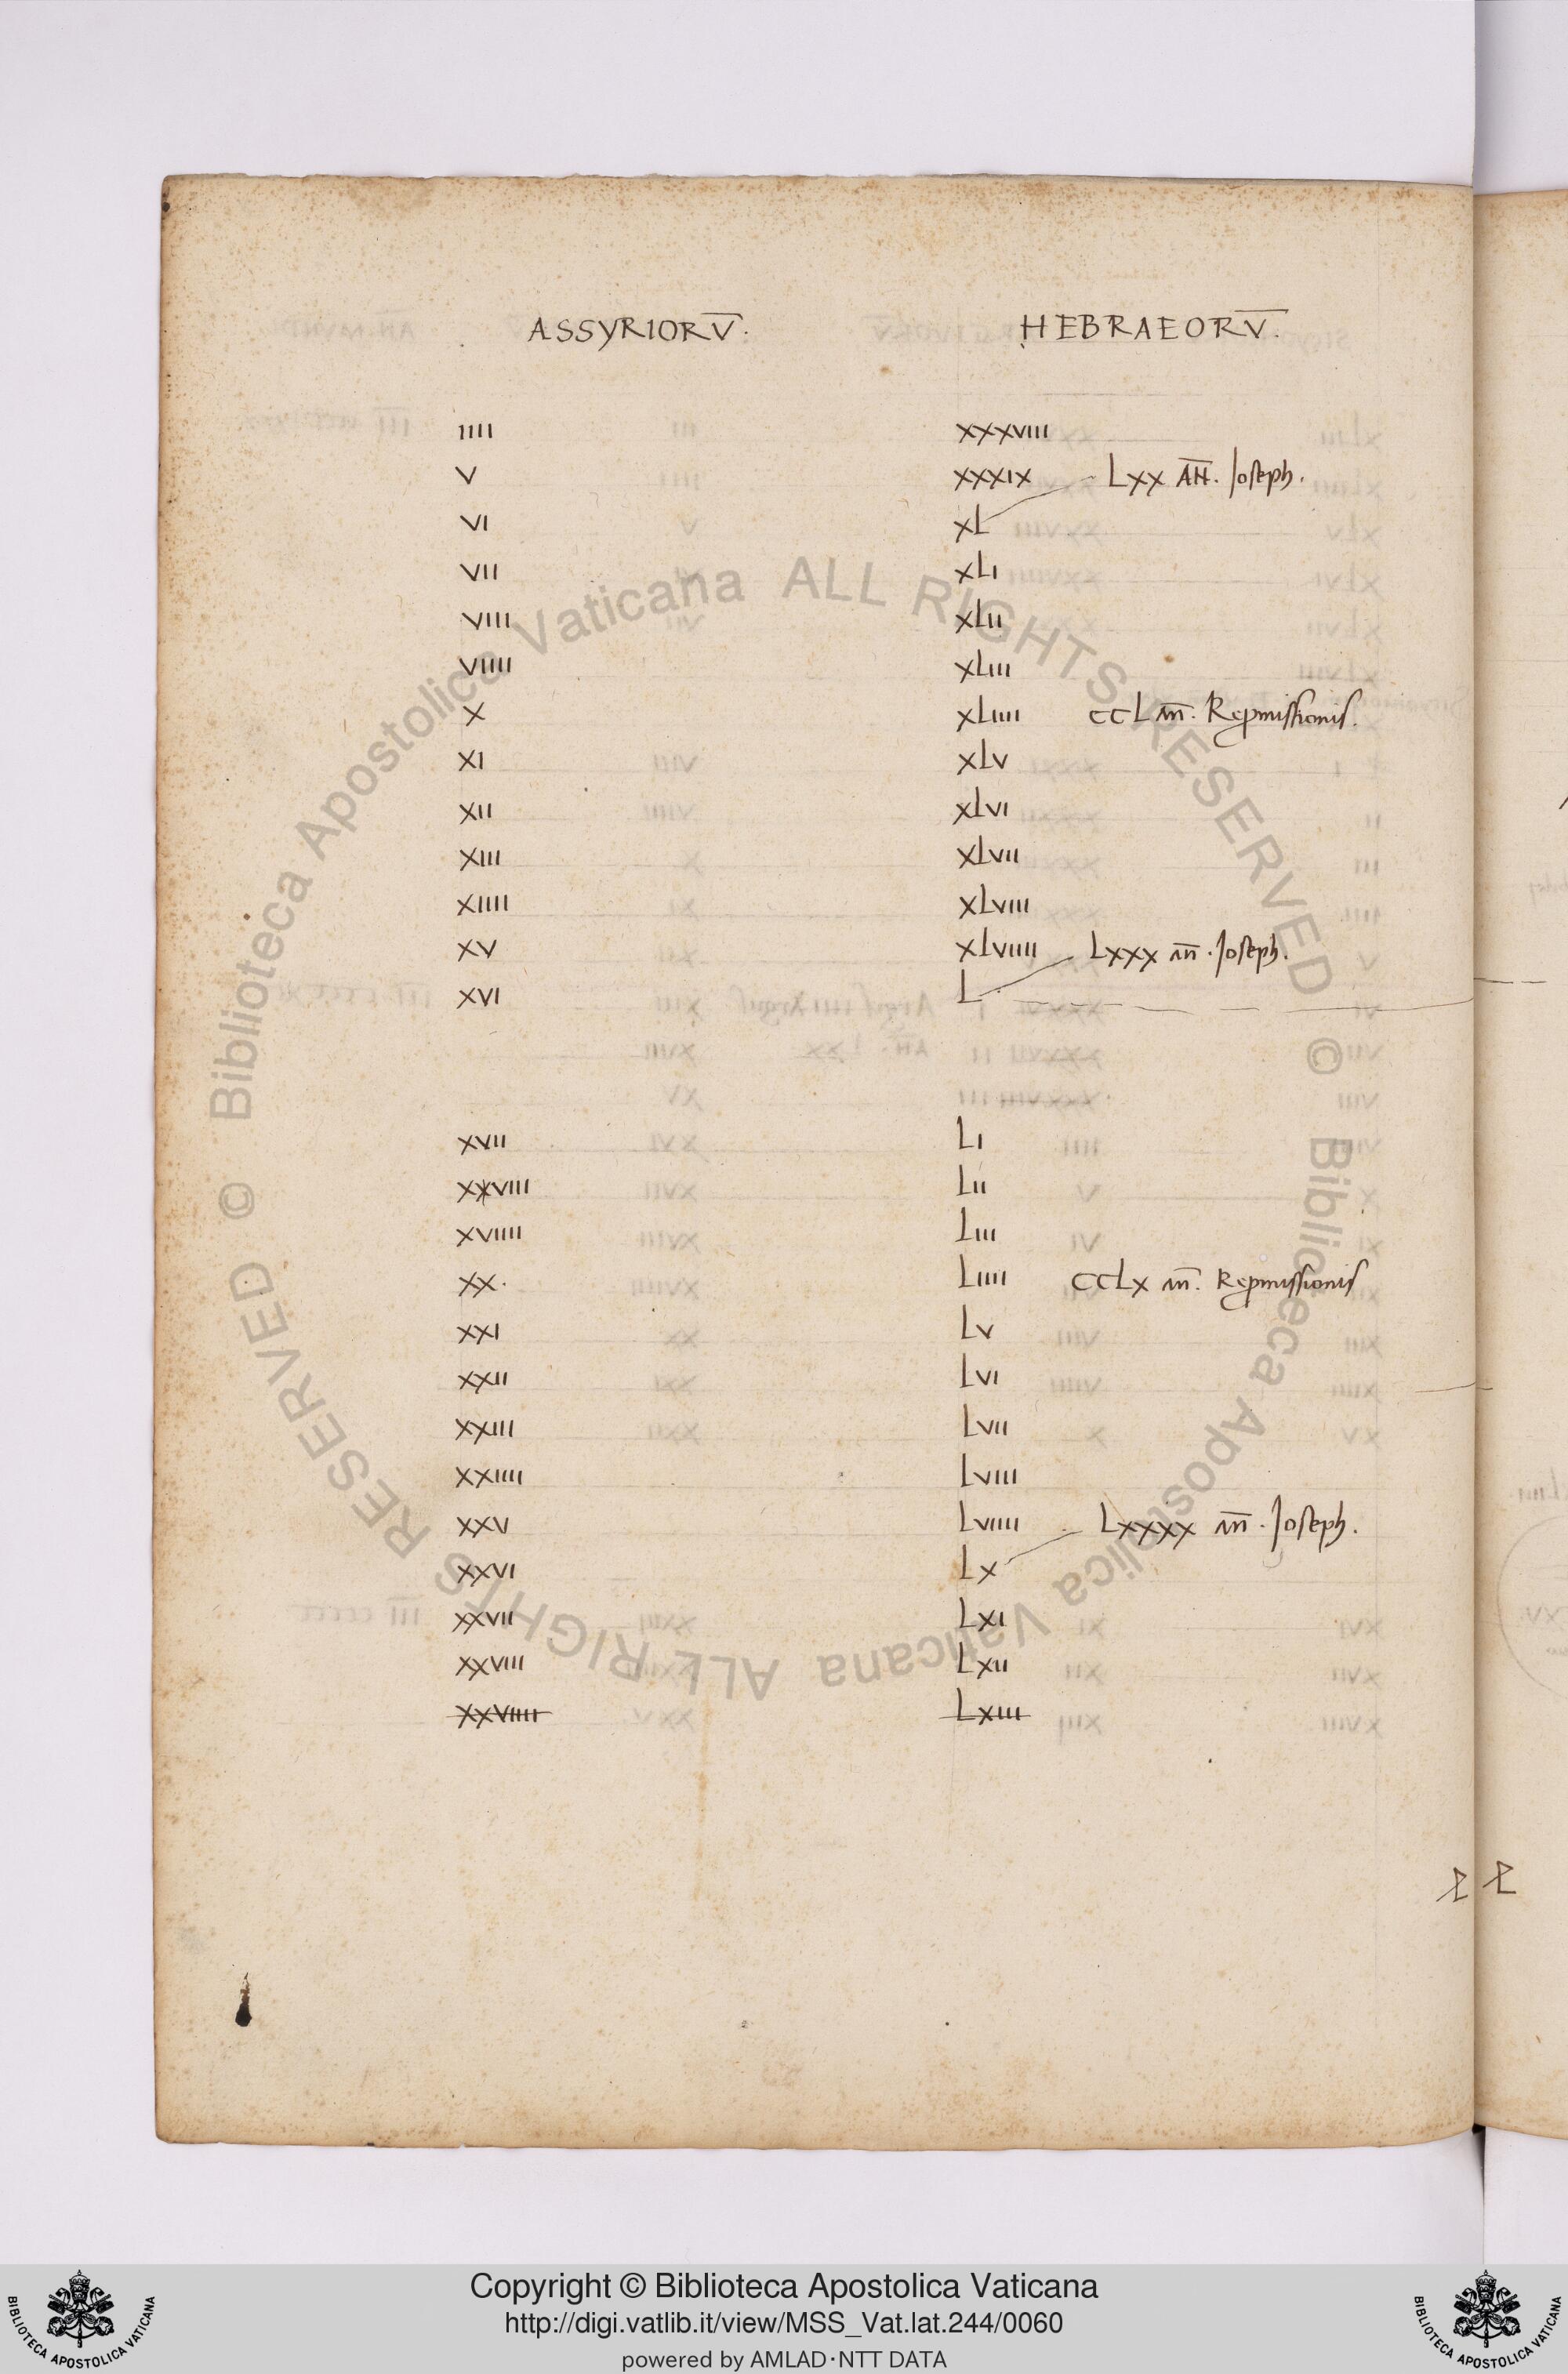 ASSYRIORV̅. HEBRAEORV̅.
IIII XXXVIII
V XXXIX LXX AN̅. Ioseph.
VI XL
VII XLI
VIII XLII
VIIII XLIII
X XLIIII CCL an̅. Repmissionis.
XI XLV
XII XLVI
XIII XLVII
XIIII XLVIII
XV XLVIIII LXXX an̅. Ioseph.
XVI L
XVII LI
XXVIII LII
XVIIII LIII
XX. LIIII CCLX an̅. Repmissionis
XXI LV
XXII LVI
XXIII LVII
XXIIII LVIII
XXV LVIIII LXXXX an̅. Ioseph.
XXVI LX
XXVII LXI
XXVIII LXII
XXVIIII LXIII
© Biblioteca Apostolica Vaticana ALL RIGHTS RESERVED
© Biblioteca Apostolica Vaticana ALL RIGHTS RESERVED
Copyright © Biblioteca Apostolica Vaticana
http://digi.vatlib.it/view/MSS_Vat.lat.244/0060
powered by AMLAD·NTT DATA
BIBLIOTECA APOSTOLICA VATICANA
BIBLIOTECA APOSTOLICA VATICANA